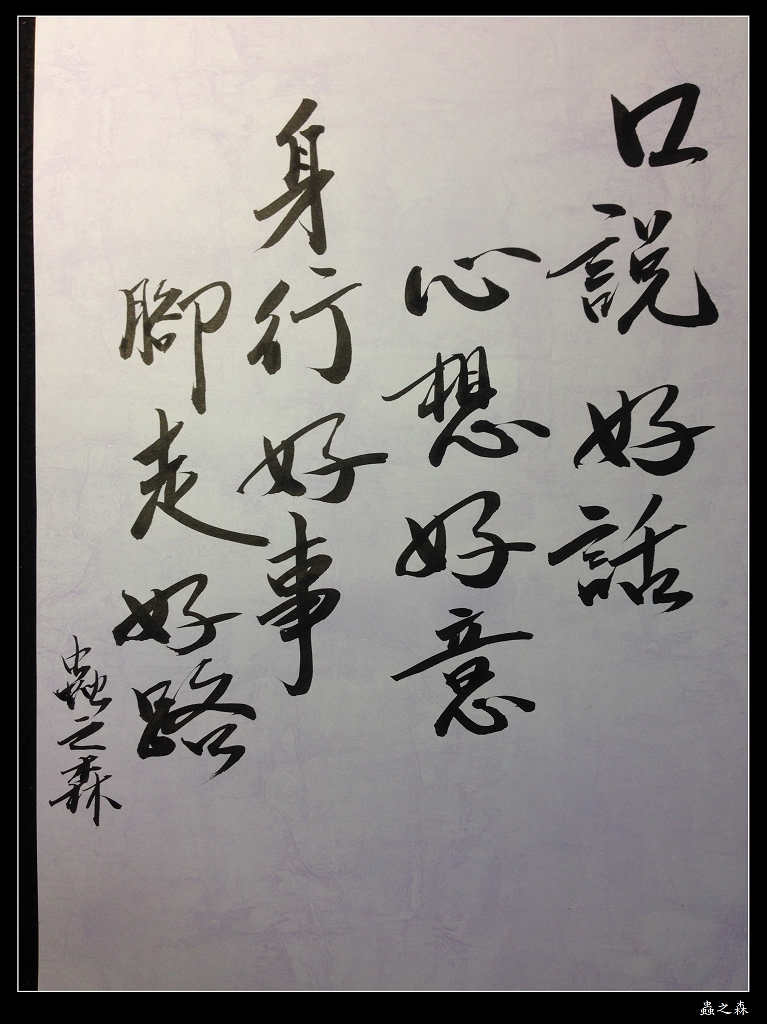 口說好話
心想好意
身行好事
腳走好路
蟲之森
蟲之森